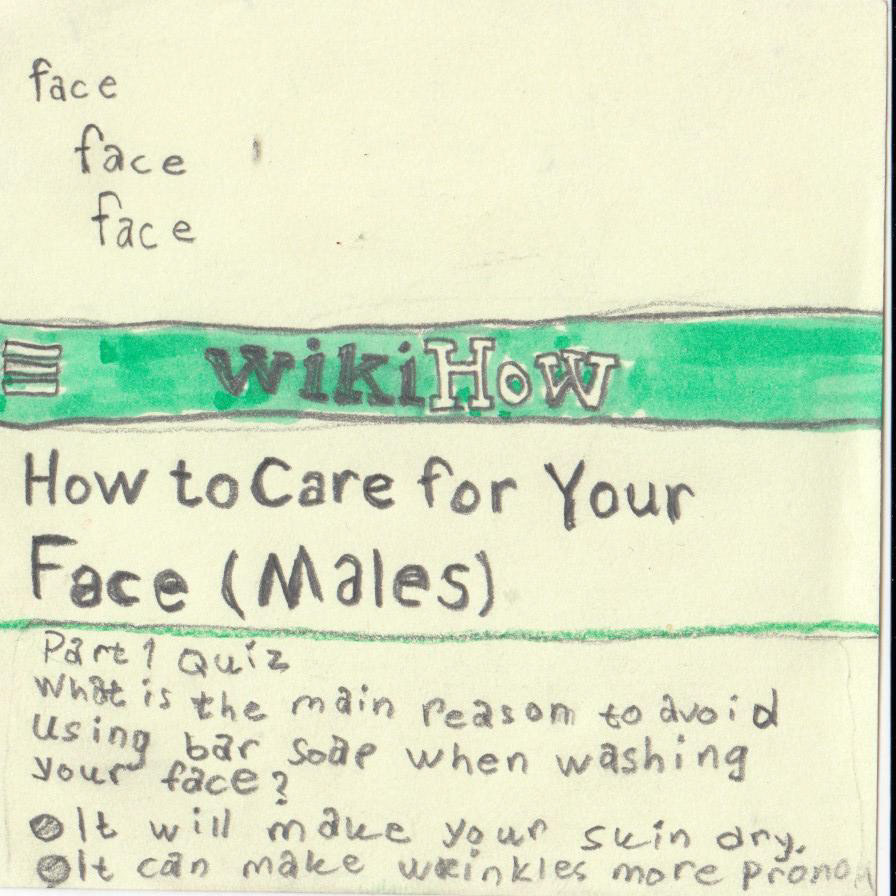 face
face
face
wikiHow
How to Care for Your
Face (Males)
Part 1 Quiz
What is the main reason to avoid
using bar soap when washing
your face?
It will make your skin dry.
It can make wrinkles more prono